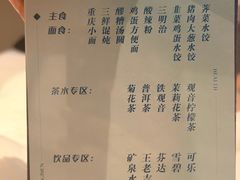 主食
面食:
重庆小面
三鲜混沌
醪糟汤圆
鸡蛋方便面
酸辣粉
三明治
韭菜鸡蛋水饺
猪肉大葱水饺
荠菜水饺
茶水专区:
菊花茶
普洱茶
铁观音
茉莉花茶
观音柠檬茶
饮品专区:
矿泉水
王老吉
芬达
雪碧
可乐